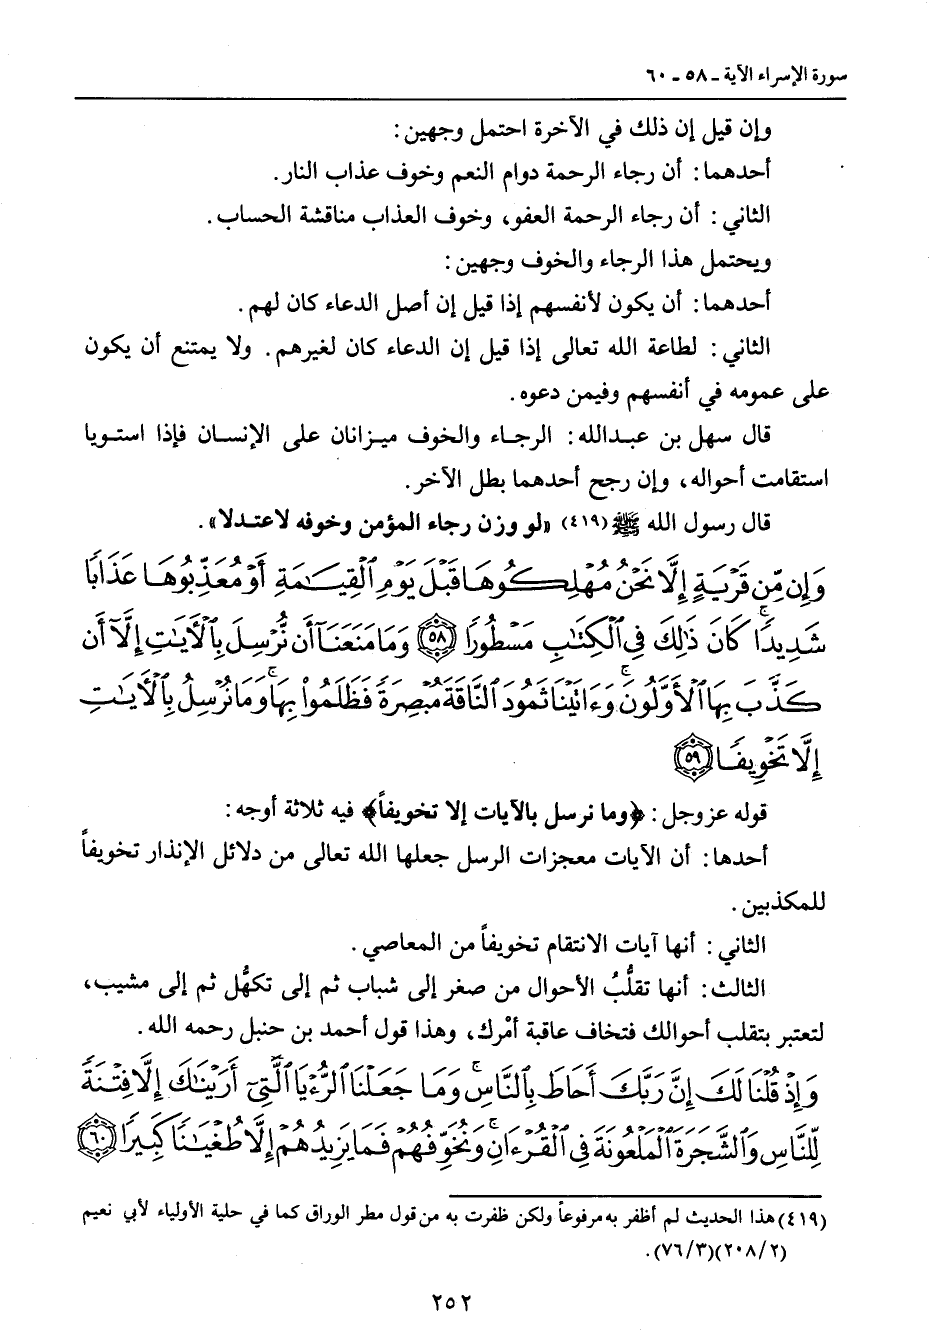 سورة الإسراء الآية ـ ٥٨ ـ ٦٠
وإن قيل إن ذلك في الآخرة احتمل وجهين:
أحدهما: أن رجاء الرحمة دوام النعم وخوف عذاب النار.
الثاني: أن رجاء الرحمة العفو، وخوف العذاب مناقشة الحساب.
ويحتمل هذا الرجاء والخوف وجهين:
أحدهما: أن يكون لأنفسهم إذا قيل إن أصل الدعاء كان لهم.
الثاني: لطاعة الله تعالى إذا قيل إن الدعاء كان لغيرهم. ولا يمتنع أن يكون
على عمومه في أنفسهم وفيمن دعوه.
قال سهل بن عبدالله: الرجاء والخوف ميزانان على الإنسان فإذا استويا
استقامت أحواله، وإن رجح أحدهما بطل الآخر.
قال رسول الله ﷺ(٤١٩) «لو وزن رجاء المؤمن وخوفه لاعتدلا».
وَإِن مِّن قَرْيَةٍ إِلَّا نَحْنُ مُهْلِكُوهَا قَبْلَ يَوْمِ ٱلْقِيَـٰمَةِ أَوْ مُعَذِّبُوهَا عَذَابًا
شَدِيدًا ۚ كَانَ ذَٰلِكَ فِى ٱلْكِتَـٰبِ مَسْطُورًا ﴿٥٨﴾ وَمَا مَنَعَنَآ أَن نُّرْسِلَ بِٱلْـَٔايَـٰتِ إِلَّآ أَن
كَذَّبَ بِهَا ٱلْأَوَّلُونَ ۚ وَءَاتَيْنَا ثَمُودَ ٱلنَّاقَةَ مُبْصِرَةً فَظَلَمُوا۟ بِهَا ۚ وَمَا نُرْسِلُ بِٱلْـَٔايَـٰتِ
إِلَّا تَخْوِيفًا ﴿٥٩﴾
قوله عز وجل: ﴿وما نرسل بالآيات إلا تخويفاً﴾ فيه ثلاثة أوجه:
أحدها: أن الآيات معجزات الرسل جعلها الله تعالى من دلائل الإنذار تخويفاً
للمكذبين.
الثاني: أنها آيات الانتقام تخويفاً من المعاصي.
الثالث: أنها تقلُّبُ الأحوال من صغر إلى شباب ثم إلى تكهُّل ثم إلى مشيب،
لتعتبر بتقلب أحوالك فتخاف عاقبة أمْرك، وهذا قول أحمد بن حنبل رحمه الله.
وَإِذْ قُلْنَا لَكَ إِنَّ رَبَّكَ أَحَاطَ بِٱلنَّاسِ ۚ وَمَا جَعَلْنَا ٱلرُّءْيَا ٱلَّتِىٓ أَرَيْنَـٰكَ إِلَّا فِتْنَةً
لِّلنَّاسِ وَٱلشَّجَرَةَ ٱلْمَلْعُونَةَ فِى ٱلْقُرْءَانِ ۚ وَنُخَوِّفُهُمْ فَمَا يَزِيدُهُمْ إِلَّا طُغْيَـٰنًا كَبِيرًا ﴿٦٠﴾
(٤١٩) هذا الحديث لم أظفر به مرفوعاً ولكن ظفرت به من قول مطر الوراق كما في حلية الأولياء لأبي نعيم
(٢٠٨/٢)(٧٦/٣).
٢٥٢